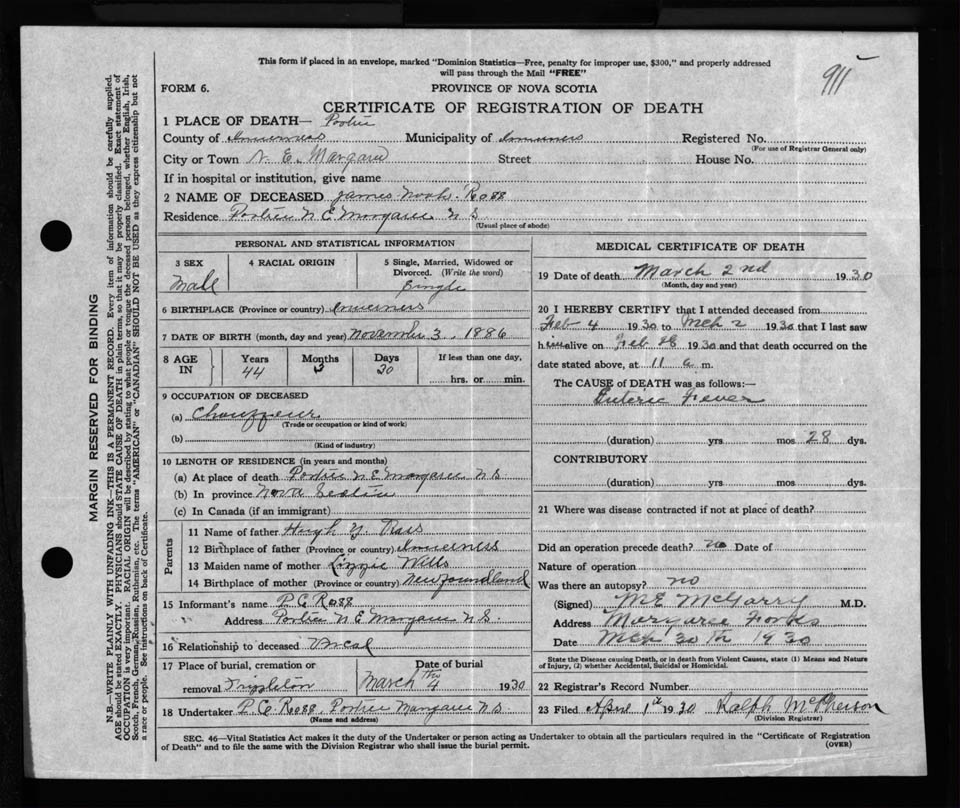 This form if placed in an envelope, marked "Dominion Statistics—Free, penalty for improper use, $300," and properly addressed
will pass through the Mail "FREE"
911
FORM 6.
PROVINCE OF NOVA SCOTIA
CERTIFICATE OF REGISTRATION OF DEATH
1 PLACE OF DEATH—
County of Inverness Municipality of Inverness Registered No.
(For use of Registrar General only)
City or Town N. E. Margaree Street House No.
If in hospital or institution, give name
2 NAME OF DECEASED James Ross
Residence N E Margaree N S
(Usual place of abode)
PERSONAL AND STATISTICAL INFORMATION
3 SEX 4 RACIAL ORIGIN 5 Single, Married, Widowed or
Divorced. (Write the word)
Male Single
6 BIRTHPLACE (Province or country) Inverness
7 DATE OF BIRTH (month, day and year) November 3, 1886
8 AGE IN Years Months Days If less than one day,
44 3 30 hrs. or min.
9 OCCUPATION OF DECEASED
(a) Chauffeur
(Trade or occupation or kind of work)
(b)
(Kind of industry)
10 LENGTH OF RESIDENCE (in years and months)
(a) At place of death N E Margaree N S
(b) In province Nova Scotia
(c) In Canada (if an immigrant)
Parents
11 Name of father Hugh Y. Ross
12 Birthplace of father (Province or country) Inverness
13 Maiden name of mother Lizzie Wills
14 Birthplace of mother (Province or country) Newfoundland
15 Informant's name P. C. Ross
Address N E Margaree N.S.
16 Relationship to deceased
17 Place of burial, cremation or Date of burial
removal March 4th 1930
18 Undertaker P. C. Ross, Margaree N.S.
(Name and address)
MEDICAL CERTIFICATE OF DEATH
19 Date of death March 2nd 1930
(Month, day and year)
20 I HEREBY CERTIFY that I attended deceased from
Feb 4 1930 to Mch 2 1930 that I last saw
him alive on Feb 28 1930 and that death occurred on the
date stated above, at 11 a. m.
The CAUSE of DEATH was as follows:—
Enteric Fever
(duration) yrs. mos 28 dys.
CONTRIBUTORY
(duration) yrs. mos. dys.
21 Where was disease contracted if not at place of death?
Did an operation precede death? no Date of
Nature of operation
Was there an autopsy? no
(Signed) M E McGarry M.D.
Address Margaree Forks
Date Mch 30th 1930
State the Disease causing Death, or in death from Violent Causes, state (1) Means and Nature
of Injury, (2) whether Accidental, Suicidal or Homicidal.
22 Registrar's Record Number
23 Filed April 1st 1930 Ralph McPherson
(Division Registrar)
SEC. 46—Vital Statistics Act makes it duty of the Undertaker or person acting as Undertaker to obtain all the particulars required in the "Certificate of Registration
of Death" and to file the same with the Division Registrar who shall issue the burial permit.
(OVER)
MARGIN RESERVED FOR BINDING
N.B—WRITE PLAINLY WITH UNFADING INK—THIS IS A PERMANENT RECORD. Every item of information should be carefully supplied.
AGE should be stated EXACTLY. PHYSICIANS should STATE CAUSE OF DEATH in plain terms, so that it may be properly classified. Exact statement of
OCCUPATION is very important. RACIAL ORIGIN will be described by stating to what people or tongue the deceased person belonged, whether English, Irish,
Scotch, French, German, Russian, Ruthenian, etc. The terms "AMERICAN" or "CANADIAN" SHOULD NOT BE USED as they express citizenship but not
a race or people. See instructions on back of Certificate.